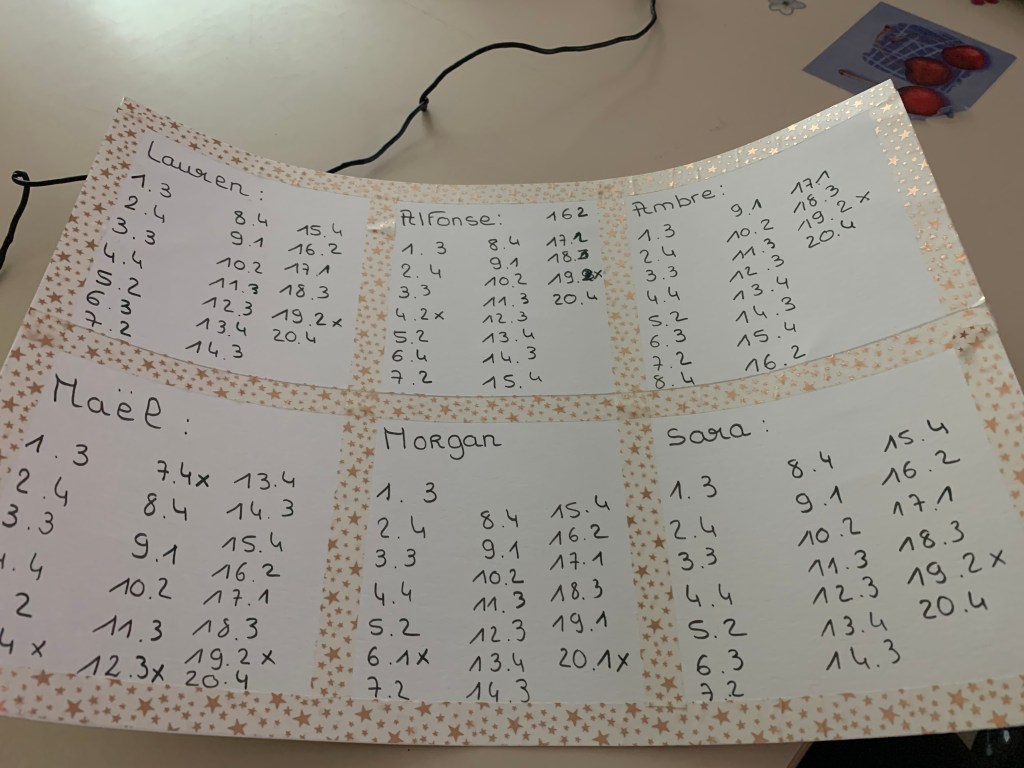 Lauren:
1.3
2.4
3.3
4.4
5.2
6.3
7.2
8.4
9.1
10.2
11.3
12.3
13.4
14.3
15.4
16.2
17.1
18.3
19.2x
20.4
Alfonse:
1.3
2.4
3.3
4.2x
5.2
6.4
7.2
8.4
9.1
10.2
11.3
12.3
13.4
14.3
15.4
162
17.1
18.3
19.2x
20.4
Ambre:
1.3
2.4
3.3
4.4
5.2
6.3
7.2
8.4
9.1
10.2
11.3
12.3
13.4
14.3
15.4
16.2
17.1
18.3
19.2x
20.4
Maël:
1.3
2.4
3.3
4.4
2
4x
7.4x
8.4
9.1
10.2
11.3
12.3x
13.4
14.3
15.4
16.2
17.1
18.3
19.2x
20.4
Morgan
1.3
2.4
3.3
4.4
5.2
6.1x
7.2
8.4
9.1
10.2
11.3
12.3
13.4
14.3
15.4
16.2
17.1
18.3
19.1
20.1x
Sara:
1.3
2.4
3.3
4.4
5.2
6.3
7.2
8.4
9.1
10.2
11.3
12.3
13.4
14.3
15.4
16.2
17.1
18.3
19.2x
20.4